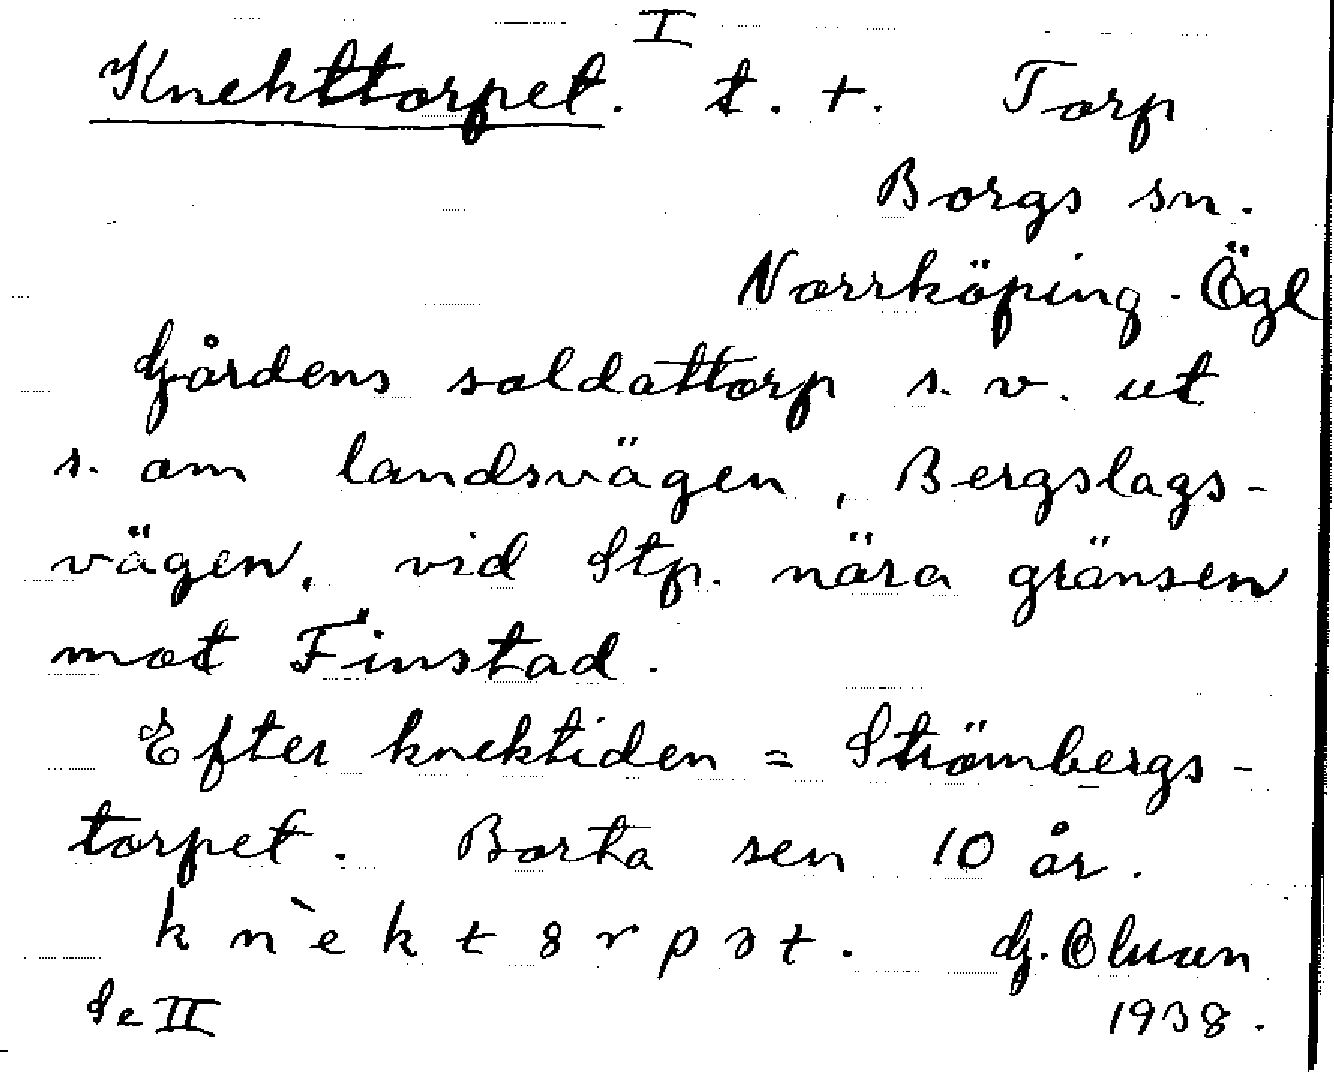 I
Knekttorpet. t. +. Torp
Borgs sn.
Norrköping - Ögl
Gårdens soldattorp s. v. ut
s. om landsvägen, Bergslags-
vägen, vid Stp. nära gränsen
mot Finstad.
Efter knektiden = Strömbergs-
torpet. Borta sen 10 år.
k n ̀e k t 8 r p ɘ t. G. Olsson
Se II 1938.